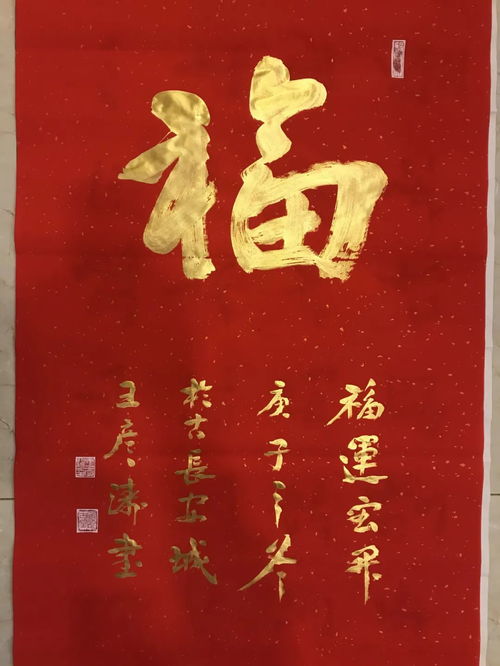 福
福運宏開
庚子之冬
於古長安城
王彦涛書